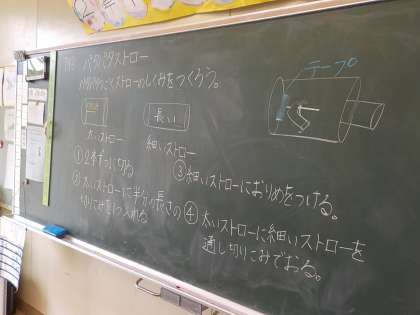 パタパタストロー
パタパタうごくストローのしくみをつくろう。
テープ
長い
太いストロー
細いストロー
①2本ずつに切る
②太いストローに半分の長さの
切りこみを1つ入れる
③細いストローにおりめをつける。
④太いストローに細いストローを
通し切りこみでおる。